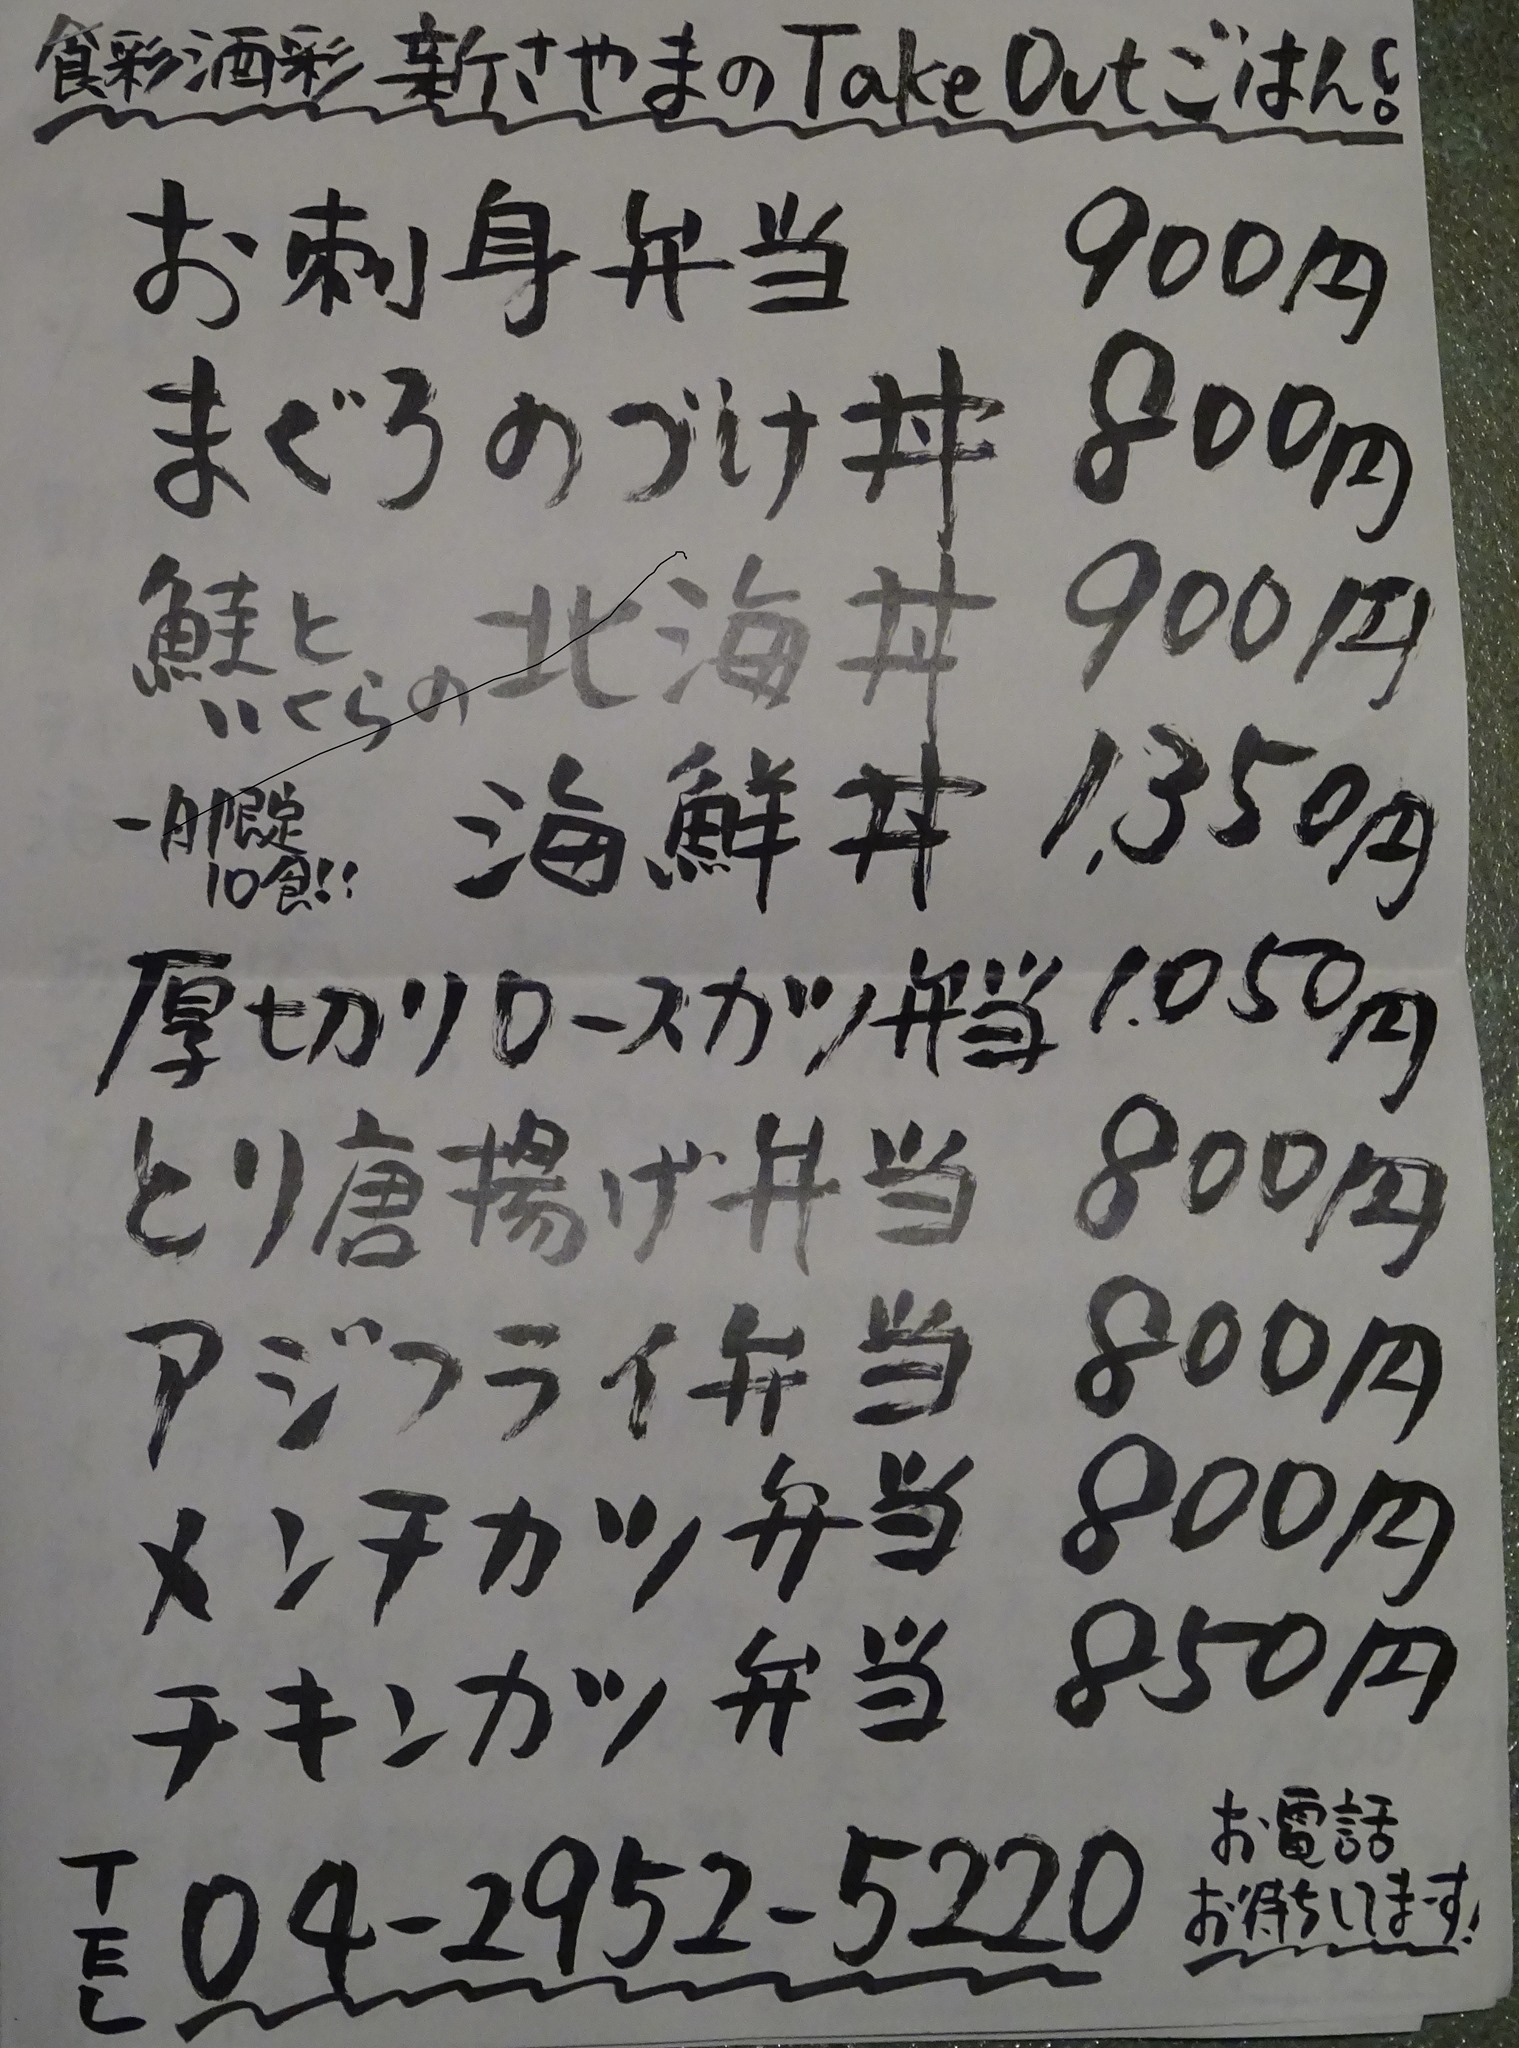 食彩酒彩 新さやまのTake Outごはん!
お刺身弁当 900円
まぐろのづけ丼 800円
鮭といくらの北海丼 900円
一日限定10食!! 海鮮丼 1,350円
厚切りロースカツ弁当 1,050円
とり唐揚げ弁当 800円
アジフライ弁当 800円
メンチカツ弁当 800円
チキンカツ弁当 850円
TEL 04-2952-5220
お電話
お待ちしてます!